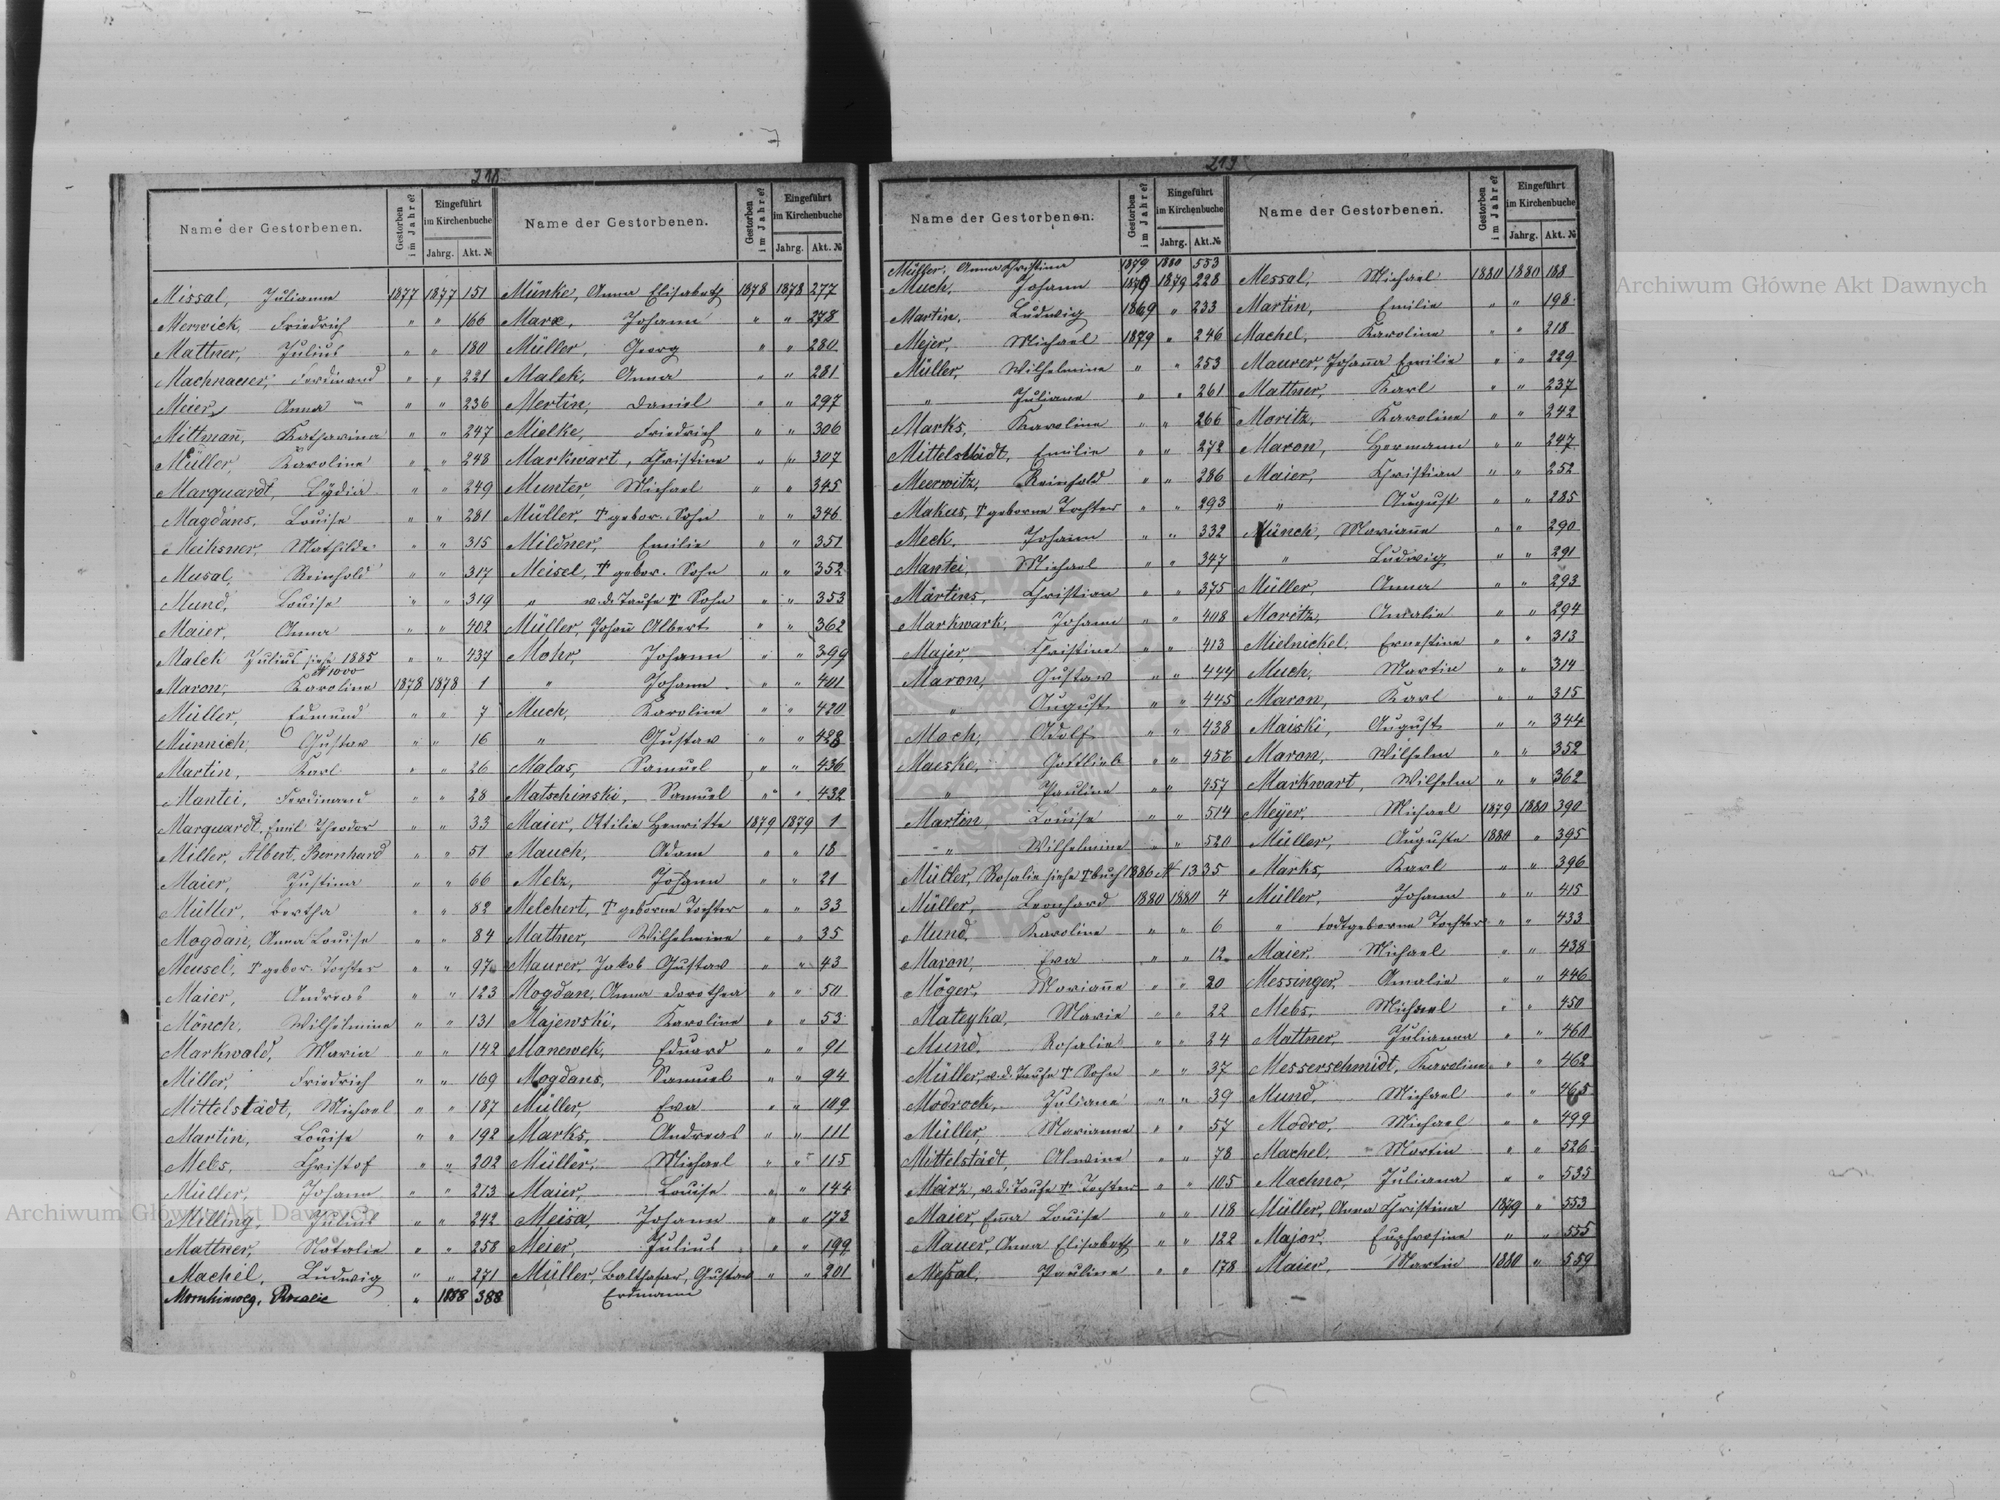 218
Name der Gestorbenen. Gestorben im Jahre? Eingeführt im Kirchenbuche Jahrg. Akt. №
Missal, Julianna 1877 1877 151
Merwick, Friedrich " " 166
Mattner, Julius " " 180
Machnauer, Ferdinand " " 221
Meier, Anna " " 236
Mittmañ, Katharina " " 247
Müller, Karoline " " 248
Marquardt, Lydia " " 249
Magdans, Louise " " 281
Meiksner, Mathilde " " 315
Musal, Reinhold " " 317
Mund, Louise " " 319
Maier, Anna " " 402
Malek Julius siehe 1885 " " 437
№ 1000
Maron, Karoline 1878 1878 1
Müller, Edmund " " 7
Münnich, Gustav " " 16
Martin, Karl " " 26
Mantei, Ferdinand " " 28
Marquardt, Emil Theodor " " 33
Miller, Albert Bernhard " " 51
Maier, Justina " " 66
Müller, Bertha " " 82
Mogdan, Anna Louise " " 84
Meusel, † gebor. Tochter " " 97
Maier, Andreas " " 123
Mönch, Wilhelmine " " 131
Markwald, Maria " " 142
Miller, Friedrich " " 169
Mittelstädt, Michael " " 187
Martin, Louise " " 192
Mebs, Christof " " 202
Müller, Johann " " 213
Milling, Julius " " 242
Mattner, Natalie " " 258
Machel, Ludwig " " 271
Rozalie " 1858 388
Name der Gestorbenen. Gestorben im Jahre? Eingeführt im Kirchenbuche Jahrg. Akt. №
Münke, Anna Elisabeth 1878 1878 277
Marx, Johann " " 278
Müller, Georg " " 280
Malek, Anna " " 281
Mertin, Daniel " " 297
Mielke, Friedrich " " 306
Markwart, Christine " " 307
Munter, Michael " " 345
Müller, † gebor. Sohn " " 346
Mildner, Emilie " " 351
Meisel, † gebor. Sohn " " 352
" v. d. Taufe † Sohn " " 353
Müller, Johañ Albert " " 362
Mohr, Johann " " 399
" Johann " " 401
Much, Karoline " " 420
" Gustav " " 428
Malas, Samuel " " 436
Matschinski, Samuel " " 432
Maier, Ottilie Henritte 1879 1879 1
Mauch, Adam " " 18
Melz, Johann " " 21
Melchert, † geborne Tochter " " 33
Mattner, Wilhelmine " " 35
Maurer, Jakob Gustav " " 43
Mogdan, Anna Dorothea " " 50
Majewski, Karoline " " 53
Manewek, Eduard " " 91
Mogdans, Samuel " " 94
Müller, Eva " " 109
Marks, Andreas " " 111
Müller, Michael " " 115
Maier, Louise " " 144
Meisa, Johann " " 173
Meier, Julius " " 199
Müller, Balthasar, Gustav " " 201
Erdmann
219
Name der Gestorbenen. Gestorben im Jahre? Eingeführt im Kirchenbuche Jahrg. Akt. №
Müller, Anna Christina 1879 1880 553
Much, Johann 1879 1879 228
Martin, Ludwig 1869 " 233
Mejer, Michael 1879 " 246
Müller, Wilhelmine " " 253
" Juliane " " 261
Marks, Karoline " " 266
Mittelstädt, Emilie " " 272
Meerwitz, Reinhold " " 286
Makus, † geborne Tochter " " 293
Meck, Johann " " 332
Mantei, Michael " " 347
Märtins, Christian " " 375
Markwark, Johann " " 408
Majer, Christine " " 413
Maron, Gustav " " 444
" August " " 445
Moch, Adolf " " 438
Maeske, Gottlieb " " 456
" Pauline " " 457
Martin, Louise " " 514
" Wilhelmine " " 520
Müller, Rosalie siehe †buch 1886 № 1335
Müller, Leonhard 1880 1880 4
Mund, Karoline " " 6
Maron, Eva " " 12
Möger, Mariañe " " 20
Mateyka, Marie " " 22
Mund, Rosalie " " 24
Müller, v. d. Taufe † Sohn " " 37
Modrock, Juliane " " 39
Müller, Marianne " " 57
Mittelstädt, Alwine " " 78
März, v. d. Taufe † Tochter " " 105
Maier, Em̄a Louise " " 118
Mauer, Anna Elisabeth " " 122
Messal, Pauline " " 178
Name der Gestorbenen. Gestorben im Jahre? Eingeführt im Kirchenbuche Jahrg. Akt. №
Messal, Michael 1880 1880 188
Martin, Emilie " " 198
Machel, Karoline " " 218
Maurer, Johaña Emilie " " 229
Mattner, Karl " " 237
Moritz, Karoline " " 242
Maron, Hermann " " 247
Maier, Christian " " 252
" August " " 285
Münch, Mariañe " " 290
" Ludwig " " 291
Müller, Anna " " 293
Moritz, Amalie " " 294
Mielnickel, Ernestine " " 313
Much, Martin " " 314
Maron, Karl " " 315
Maiski, August " " 344
Maron, Wilhelm " " 352
Markwart, Wilhelm " " 362
Meyer, Michael 1879 1880 390
Müller, Auguste 1880 " 395
Marks, Karl " " 396
Müller, Johann " " 415
" todtgeborne Tochter " " 433
Maier, Michael " " 438
Messinger, Amalie " " 446
Mebs, Michael " " 450
Mattner, Julianna " " 460
Messerschmidt, Karoline " " 462
Mund, Michael " " 465
Modro, Michael " " 499
Machel, Martin " " 526
Machno, Juliana " " 535
Müller, Anna Christina 1879 " 553
Major, Euphrosine " " 555
Maier, Martin 1880 " 559
Archiwum Główne Akt Dawnych
Archiwum Główne Akt Dawnych